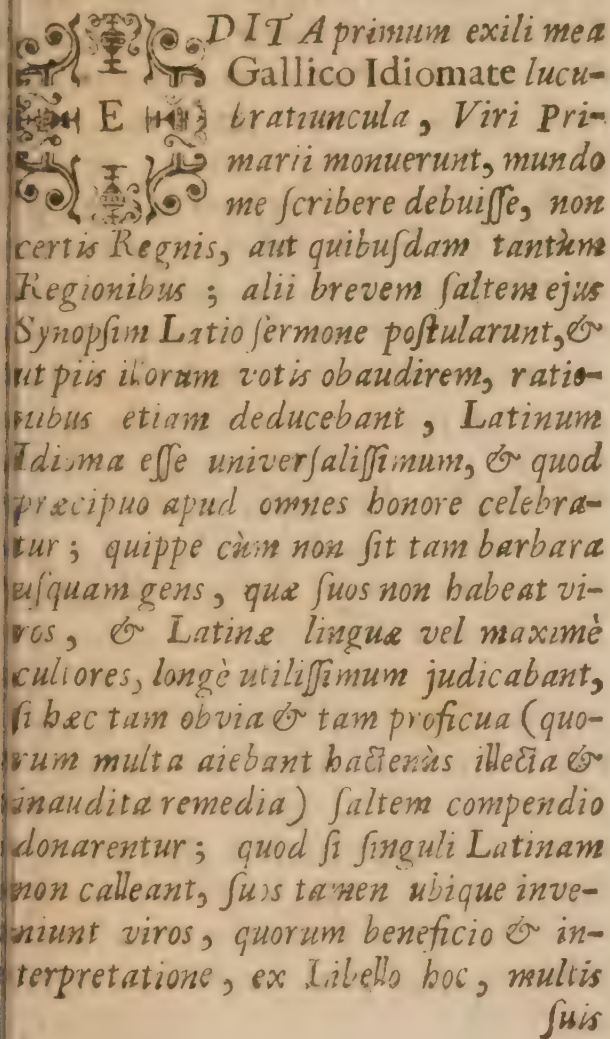 EDITA primum exili mea
Gallico Idiomate lucu-
bratiuncula, Viri Pri-
marii monuerunt, mundo
me ſcribere debuiſſe, non
certis Regnis, aut quibuſdam tantùm
Regionibus ; alii brevem ſaltem ejus
Synopſim Latio ſermone poſtularunt, &
ut piis illorum votis obaudirem, ratio-
nibus etiam deducebant, Latinum
Idioma eſſe univerſaliſſimum, & quod
præcipuo apud omnes honore celebra-
tur ; quippe cùm non ſit tam barbara
uſquam gens, quæ ſuos non habeat vi-
ros, & Latinæ linguæ vel maximè
cultores, longè utiliſſimum judicabant,
ſi hæc tam obvia & tam proficua (quo-
rum multa aiebant hactenùs illecta &
inaudita remedia) ſaltem compendio
donarentur ; quod ſi ſinguli Latinam
non calleant, ſuos tamen ubique inve-
niunt viros, quorum beneficio & in-
terpretatione, ex Libello hoc, multis
ſuis